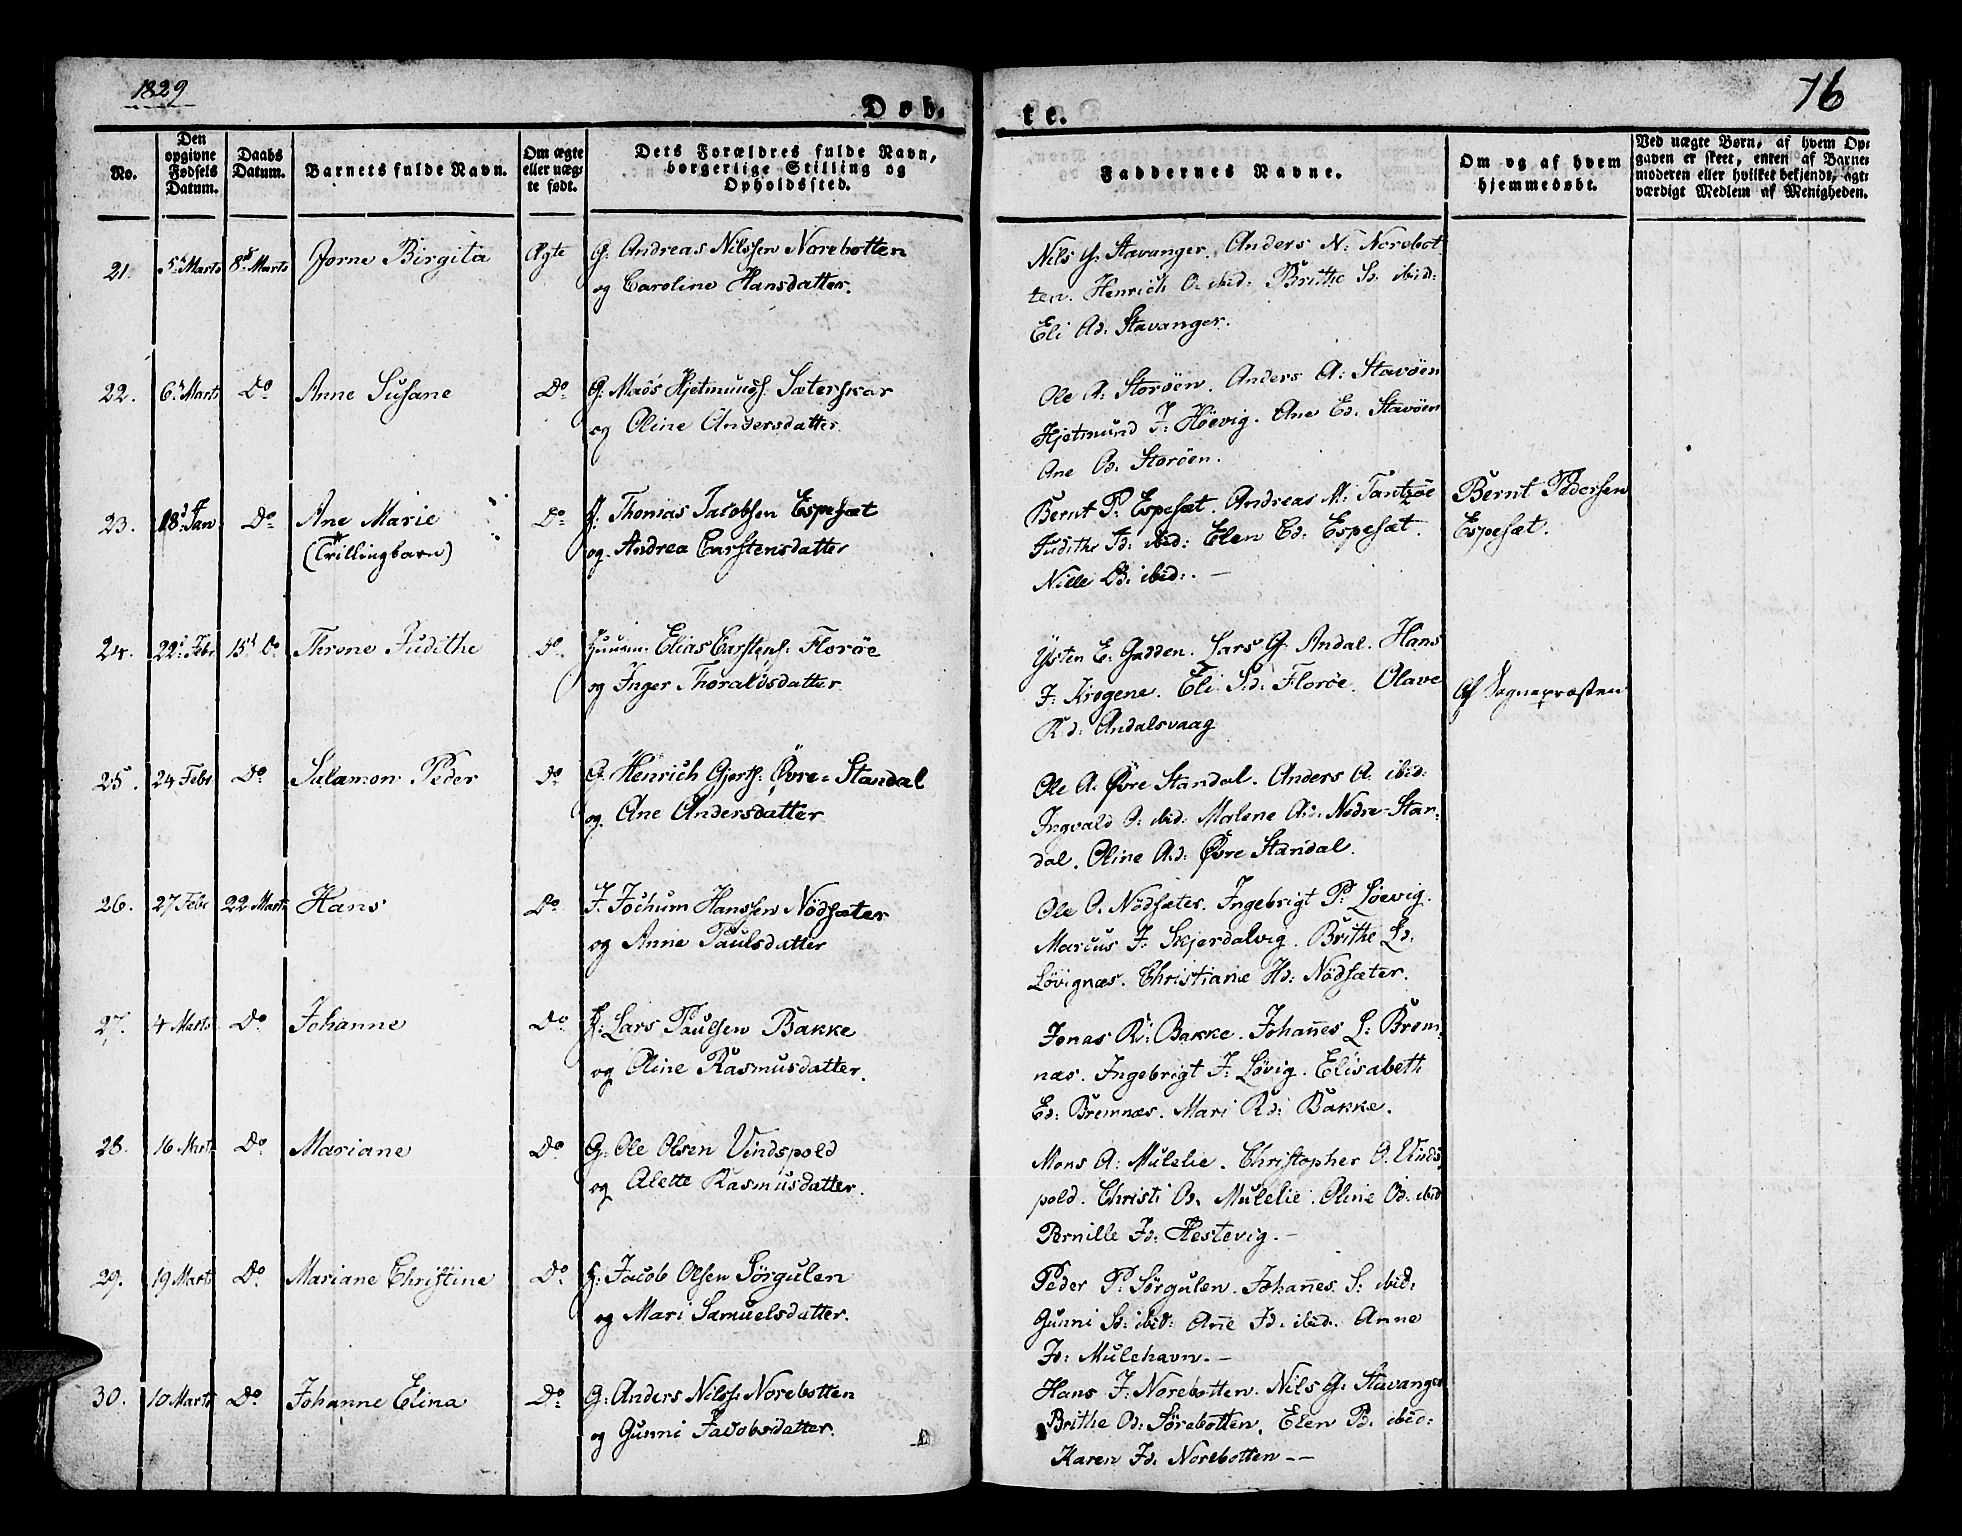 1829
76
Døb.
te.
No.
Den
opgivne
Fødsels
Datum.
Daabs
Datum.
Barnets fulde Navn.
Om ægte
eller uæg-
te født.
Dets Forældres fulde Navn,
borgerlige Stilling og
Opholdssted.
Faddernes Navne.
Om og af hvem
hjemmedøbt.
Ved uægte Børn, af hvem Op-
gaven er skeet, enten af Barne-
moderen eller hvilket bekjendt, agt-
værdigt Medlem af Menigheden.
21. 5 Marts 8 Marts Jorne Birgita Ægte G: Andreas Nilssen Norebotten
og Caroline Hansdatter.
Nils G: Stavanger. Anders N: Norebot
ten. Henrich O. ibid: Brithe ibid:
Eli Ad: Stavanger.
22. 6 Marts Do Anne Susane Do G: Mads Hjetmunds: Sæterskar
og Oline Andersdatter
Ole A: Storöen. Anders A: Stavöen
Hjetmund J: Höevig. Ane Ed. Stavöen
Ane Od. Storöen.
23. 18 Jan Do Ane Marie Do Thomas Jacobsen Espesæt
(Trillingbarn) og Andrea Carstensdatter
Bernt P: Espesæt. Andreas M: Tantzöe
Judithe Jd: ibid: Elen Ed: Espesæt.
Nille ibid: —
Bernt Pedersen
Espesæt.
24. 22 Febr 15 Do Throne Judithe Do Elias Carstens: Floröe
og Inger Thoraldsdatter
Ysten E. Gadden. Lars G: Andal. Hans
J: Krogene. Eli Sd: Floröe. Olave
Rd: Andalsvaag
Af Sognepræsten
25. 24 Febr Do Salamon Peder Do G: Henrich Gjerts: Övre-Standal
og Ane Andersdatter
Ole A. Övre Standal. Anders A: ibid:
Ingvald O: ibid: Malene Ad. Nedre-Stan-
dal. Oline Ad: Övre Standal.
26. 27 Febr 22 Marts Hans Do J. Jochum Hanssen Nödsæter
og Anne Paulsdatter
Ole O. Nödsæter. Ingebrigt P: Löevig.
Marcus J: Skjerdalvig. Brithe Ld:
Lövignæs. Christiane Hd: Nödsæter.
27. 4 Marts Do Johanne Do Lars Paulsen Bakke
og Oline Rasmusdatter.
Jonas R: Bakke. Johannes L: Brem-
næs. Ingebrigt J: Lövig. Elisabeth
Ed: Bremnæs. Mari Rd: Bakke.
28. 16 Marts Do Mariane Do G: Ole Olsen Vindspold
og Alette Rasmusdatter.
Mons A: Mulelie. Christopher O. Vinds
pold. Christi Od. Mulelie. Oline Od: ibid
Pernille Jd: Hestevig. —
29. 19 Marts Do Mariane Christine Do Jacob Olsen Sörgulen
og Mari Samuelsdatter.
Peder P: Sörgulen. Johannes S: ibid:
Gunni Sd: ibid: Ane Jd. ibid. Anne
Jd: Mulehavn. —
30. 10 Marts Do Johanne Elina Do G: Anders Nilss: Norebotten
og Gunni Jacobsdatter.
Hans J: Norebotten. Nils G: Stavanger
Brithe Od: Sörebotten. Elen Pd: ibid:
Karen Jd. Norebotten — —